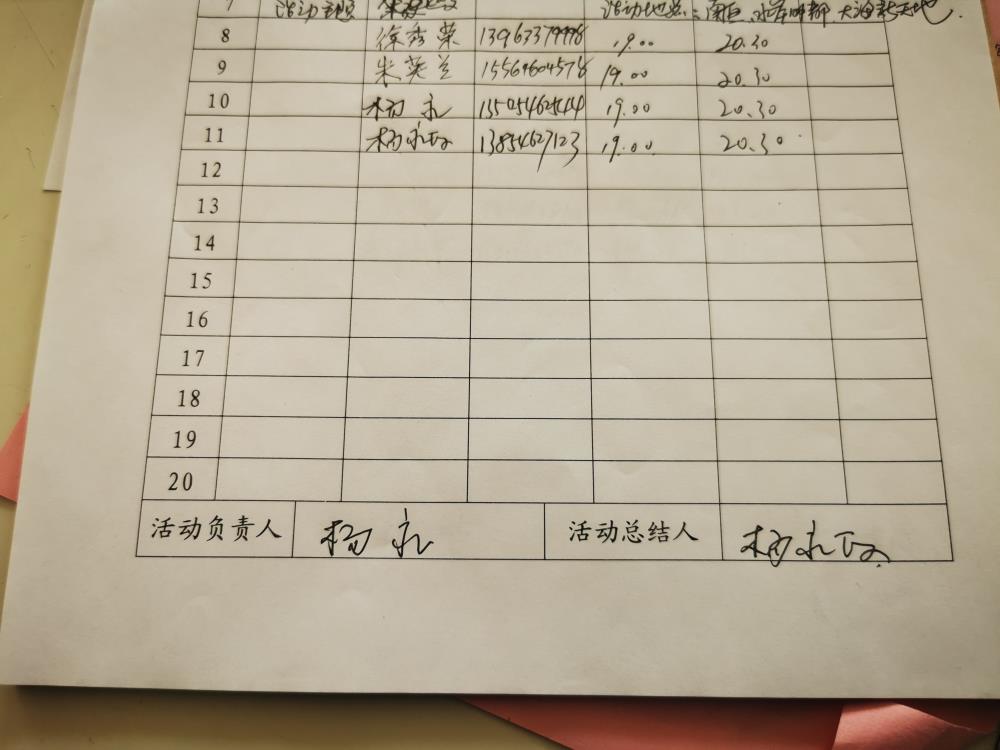 7 活动主题 活动地点:
8 徐秀荣 19.00 20.30
9 朱英兰 15564604578 19.00 20.30
10 杨永 19.00 20.30
11 杨永政 13854627123 19.00 20.30
12
13
14
15
16
17
18
19
20
活动负责人 杨永 活动总结人 杨永政